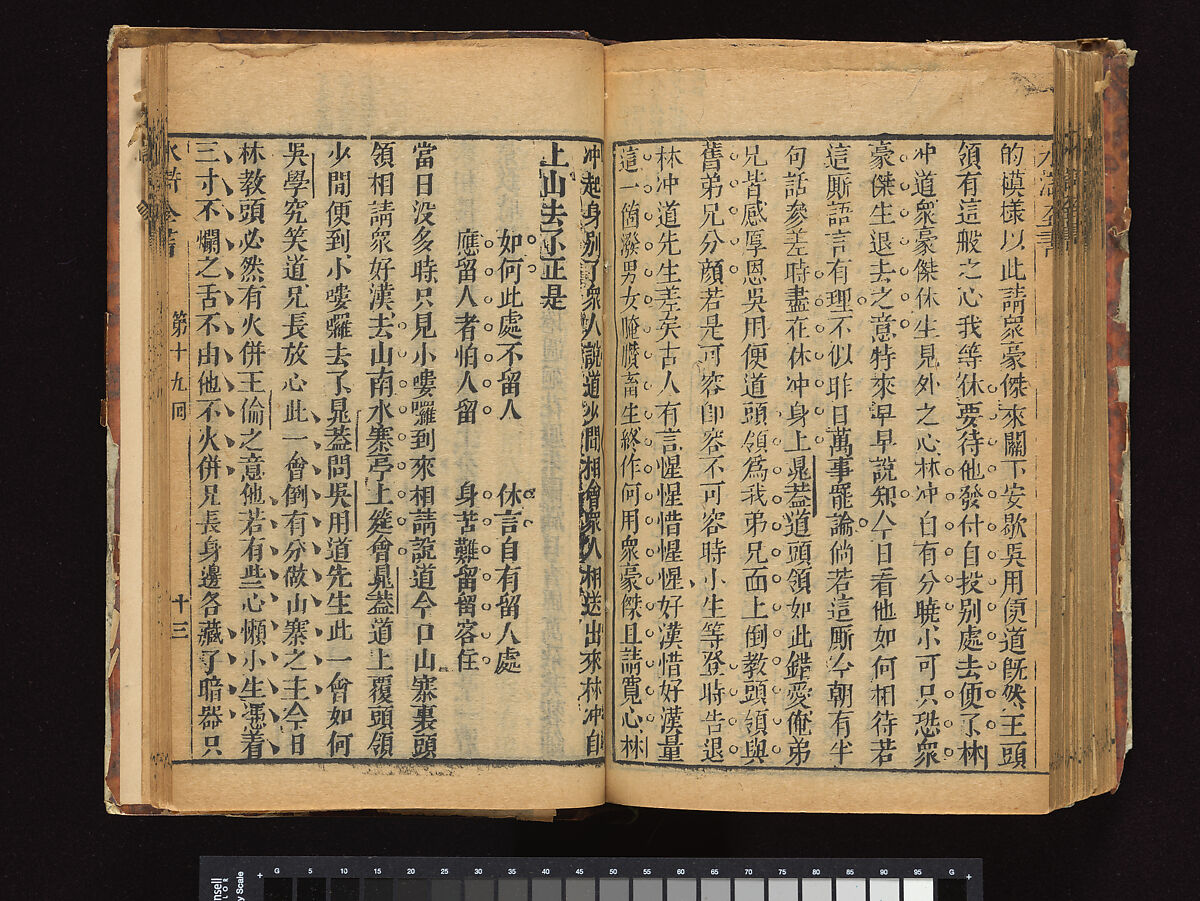 水滸全書
的模樣以此請衆豪傑來關下安歇吳用便道旣然王頭
領有這般之心我等休要待他發付自投别處去便了林
冲道衆豪傑休生見外之心林冲自有分曉小可只恐衆
豪傑生退去之意特來早早說知今日看他如何相待若
這厮語言有理不似昨日萬事罷論倘若這厮今朝有半
句話參差時盡在林冲身上晁葢道頭領如此錯愛俺弟
兄皆感厚恩吳用便道頭領爲我弟兄面上倒教頭領與
舊弟兄分顔若是可容卽容不可容時小生等登時告退
林冲道先生差矣古人有言惺惺惜惺惺好漢惜好漢量
這一箇潑男女腌臢畜生終作何用衆豪傑且請寬心林
冲起身别了衆人說道少間相會衆人相送出來林冲自
上山去了正是
如何此處不留人　休言自有留人處
應留人者怕人留　身苦難留留客住
當日没多時只見小嘍囉到來相請說道今日山寨裏頭
領相請衆好漢去山南水寨亭上筵會晁葢道上覆頭領
少間便到小嘍囉去了晁葢問吳用道先生此一會如何
吳學究笑道兄長放心此一會倒有分做山寨之主今日
林教頭必然有火併王倫之意他若有些心懶小生凴着
三寸不爛之舌不由他不火併兄長身邊各藏了暗器只
水滸全書　第十九囘　十三